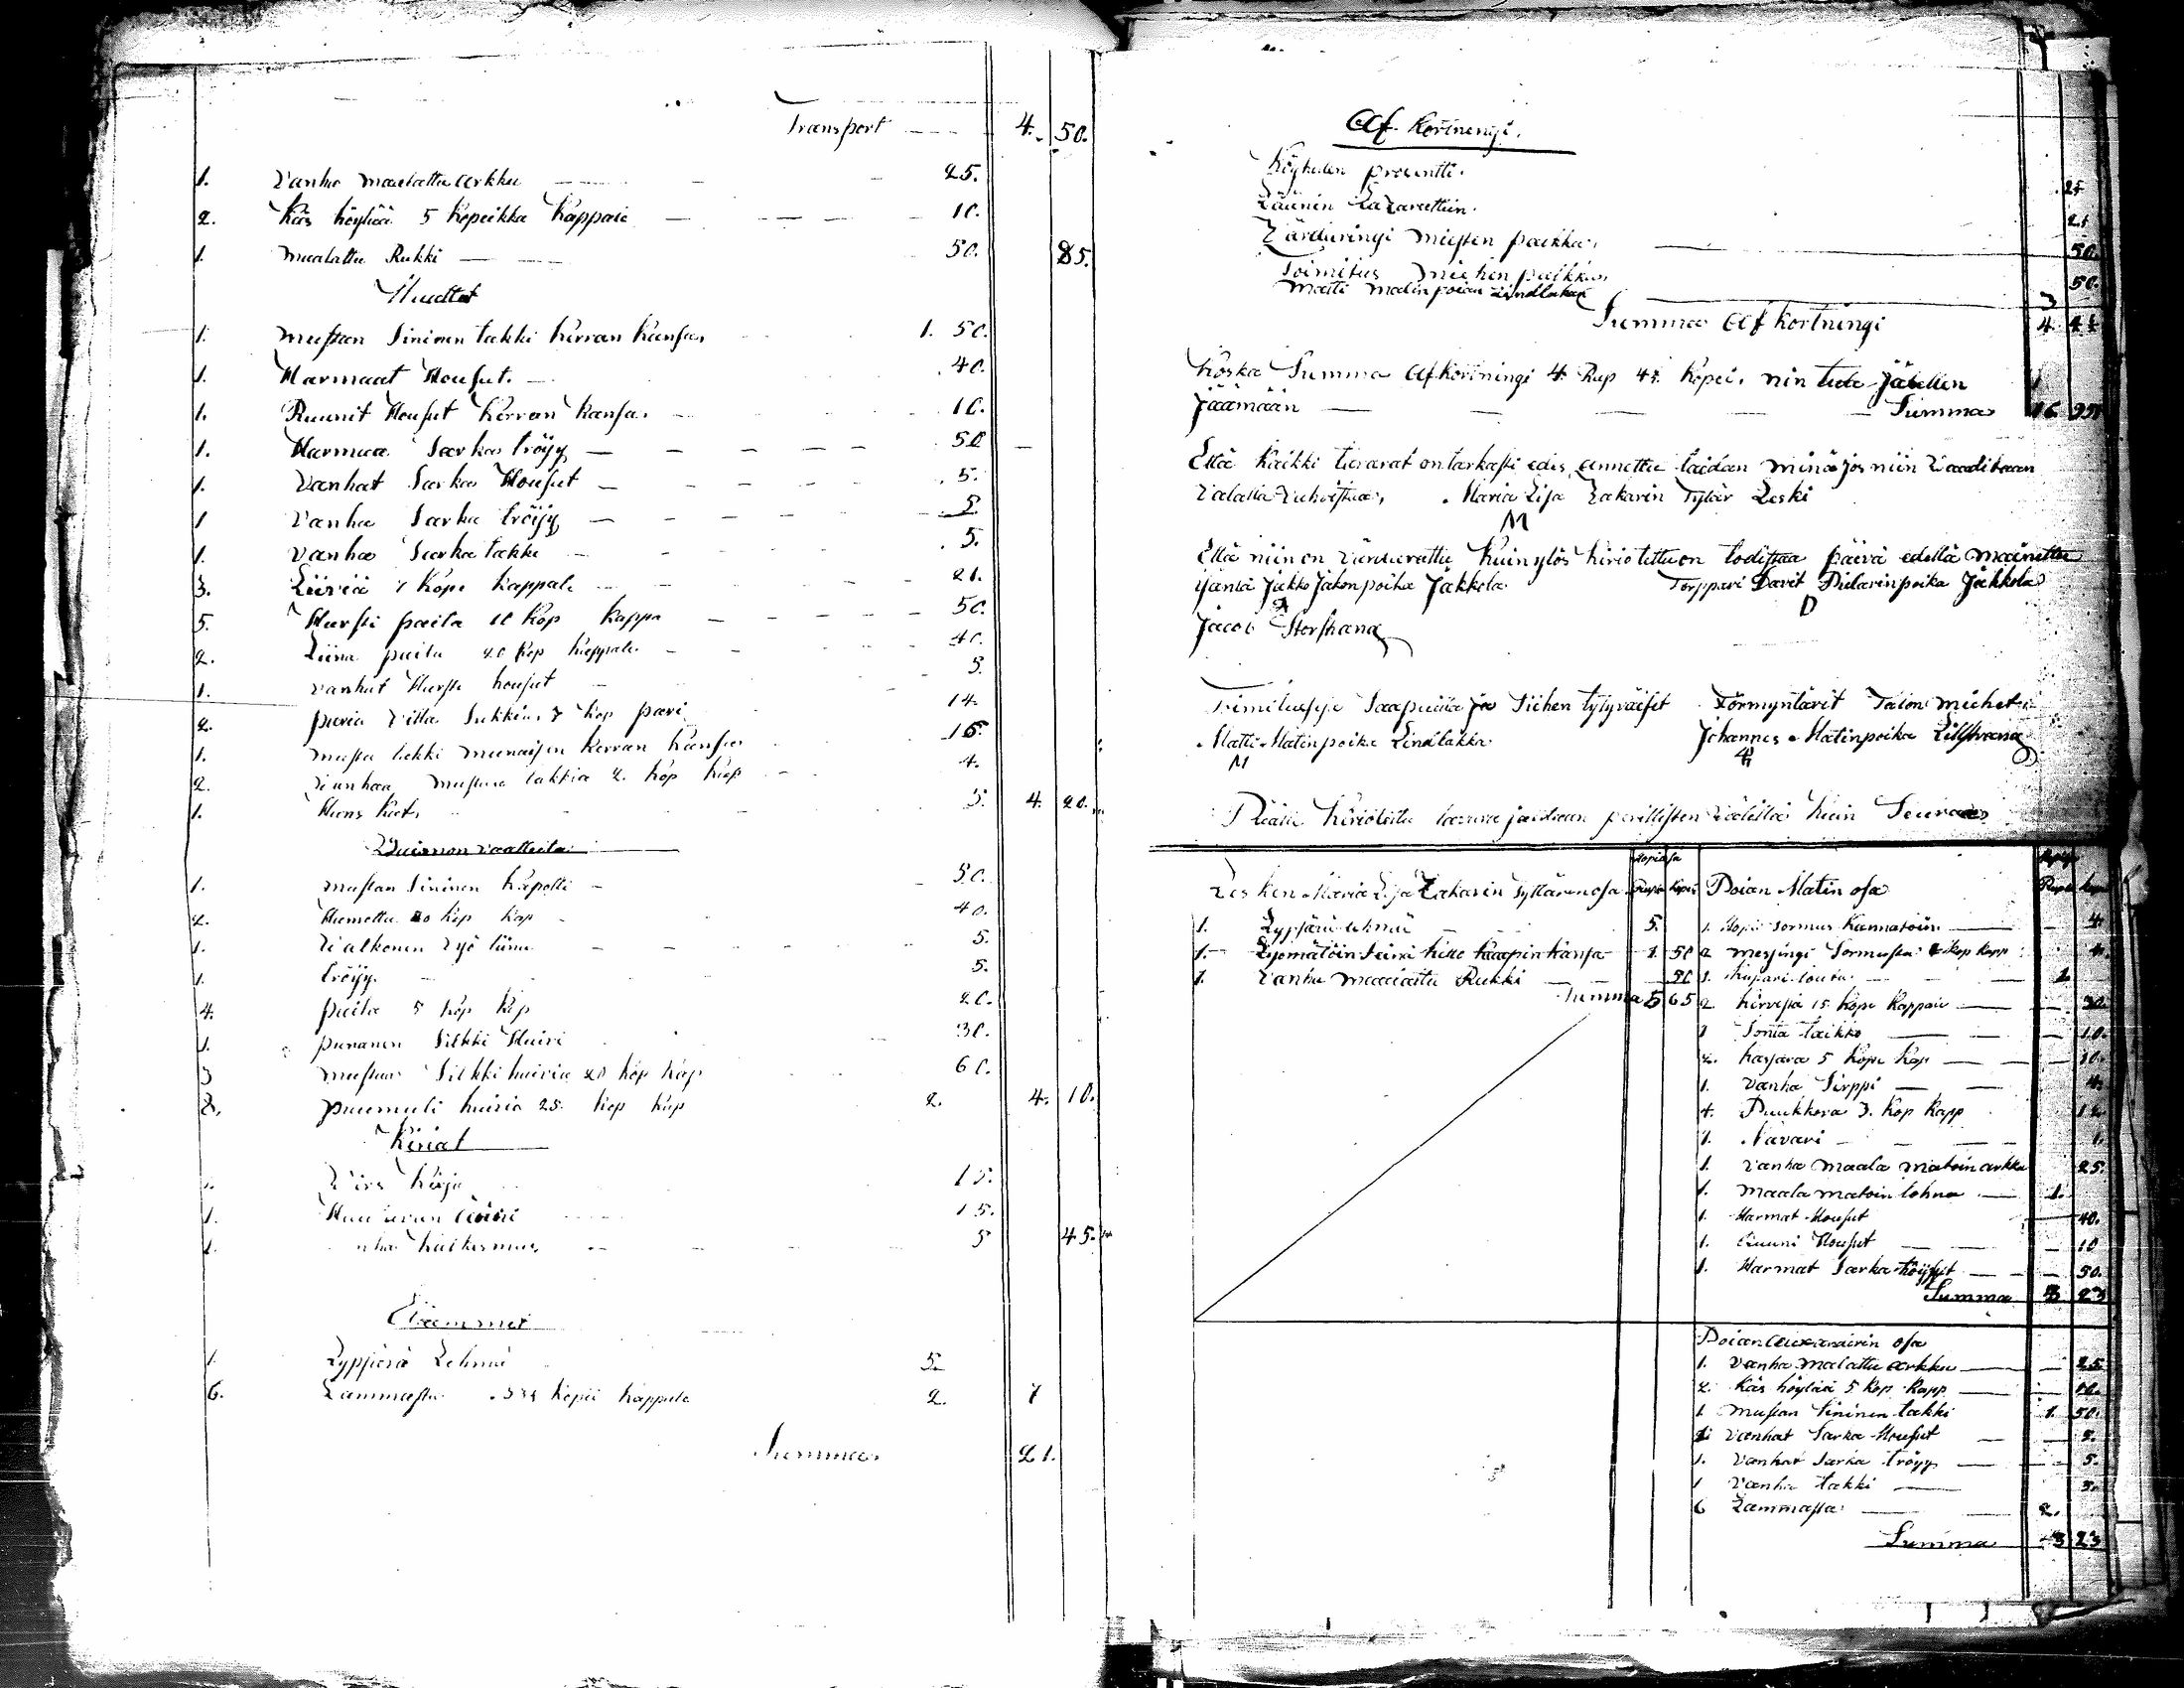 Transport 4. 50.
1. Vanha maalattu arkku 25.
2. Käs höylää 5 Kopeikka Kappale 10.
1. maalattu Rukki 50. 85.
Vaattet
1. mustan Sininen takki Kerran Kansa 1. 50.
1. Harmaat Housut. 40.
1. Ruunit Housut Kerran Kansa. 10.
1. Harmaa Sarka tröijy 50
1. Vanhat Sarka Housut 5.
1 Vanha Sarka tröijy 5.
1. Vanha Sarka takki 5.
3. Liiviä 7 Kope Kappale 21.
5. Hursti paita 10 Kop Kappa 50.
2. Liina paita 20 Kop Kappale 40.
1. vanhat Hursti housut 5.
2. paria Villa Sukkia 7 Kop pari 14.
1. musta lakki Kerran Kansa 15.
2. vanhaa mustaa lakkia 2. Kop Kap 4.
1. Hans 5. 4. 20.
Vaimon vaatteita
1. mustan Sininen Kapotti 50.
2. Hametta 20 Kop Kap 40.
1. Vyö liina 5.
1. tröijy 5.
4. paita 5 Kop Kap 20.
1. punanen Silkki Huivi 30.
3 mustaa Silkki huivia 20 Kop Kap 60.
8. puumuli huivia 25. Kop Kap 2. 4. 10.
Kiriat
1. Virs Kirja 15.
1. 15.
1. 5 45.
Eläimmet
1. Lypsävä Lehmä 5.
6. Lammasta 33⅓ Kopei Kappale 2. 7
Summa 21.
Af Kortningi.
Köyhäin prosentti. 21
Läänin Lazarettiin. 21
Värderingi miesten palkka 50.
Toimitus miehen palkka 50.
Matti Matinpoian Lindlakka 3
Summa Af Kortningi 4 42
Koska Summa Af Kortningi 4 Rup 42 Kopei. nin tule jälellen
Jäämään Summa 16
Että Kaikki tavarat on tarkasti edes annettu taidan minä jos niin vaaditaan
Valalla vahvistaa, Maria Lisa Zakarin Tytär Leski
M
Että niin on värderattu Kuin ylös Kirioitettu on todistaa päivä edellä mainittu
Jakko Jakonpoika Jakkola Torppari Davit Jakkola
D
Jacob Storstrang
Toimituksesa Saapuilla ja Siihen tytyväiset Förmyntärit Talon miehet
Matti Matinpoika Lindlakka Johannes Matinpoika Lillstrang
M
Kirioitettu tavara jaetaan perillisten välillä Kuin Seuraa
Lesken Maria Lisa Zakarin Tyttären osa Rupla Kopei Poian Matin osa Rupla Kopei
1. Lypsävä lehmä 5.
1. Lyömätöin Seinä kello kaapin kansa 1 50
1. Vanha maalattu Rukki 50
Summa 5 65
1. Hopia sormus Kannatoin 4.
2 mesjingi Sormusta 2 Kop Kapp 4.
1. Kupari 1.
2 Kirvestä 15 Kope Kappale 30.
1 Sonta taikko 10.
2. 5 Kope Kap 10.
1. Vanha Sirppi 4.
4. Puukkoa 3. Kop Kapp 12.
1. Navari 1.
1. Vanha maala matoin arkku 25.
1. maala matoin lohna 1.
1. Harmat Housut 40.
1. Ruuni Housut 10
1. Harmat Sarka tröijyt 50.
Summa 3 23
Poian osa
1. Vanha malattu arkku 25
2. Käs höylää 5 Kop Kapp 10.
1 mustan Sininen takki 1. 50.
1 Vanhat Sarka Housut 5.
1. Vanhat Sarka tröyy 5.
1 Vanha takki 5.
6 Lammasta 2.
Summa 3 23